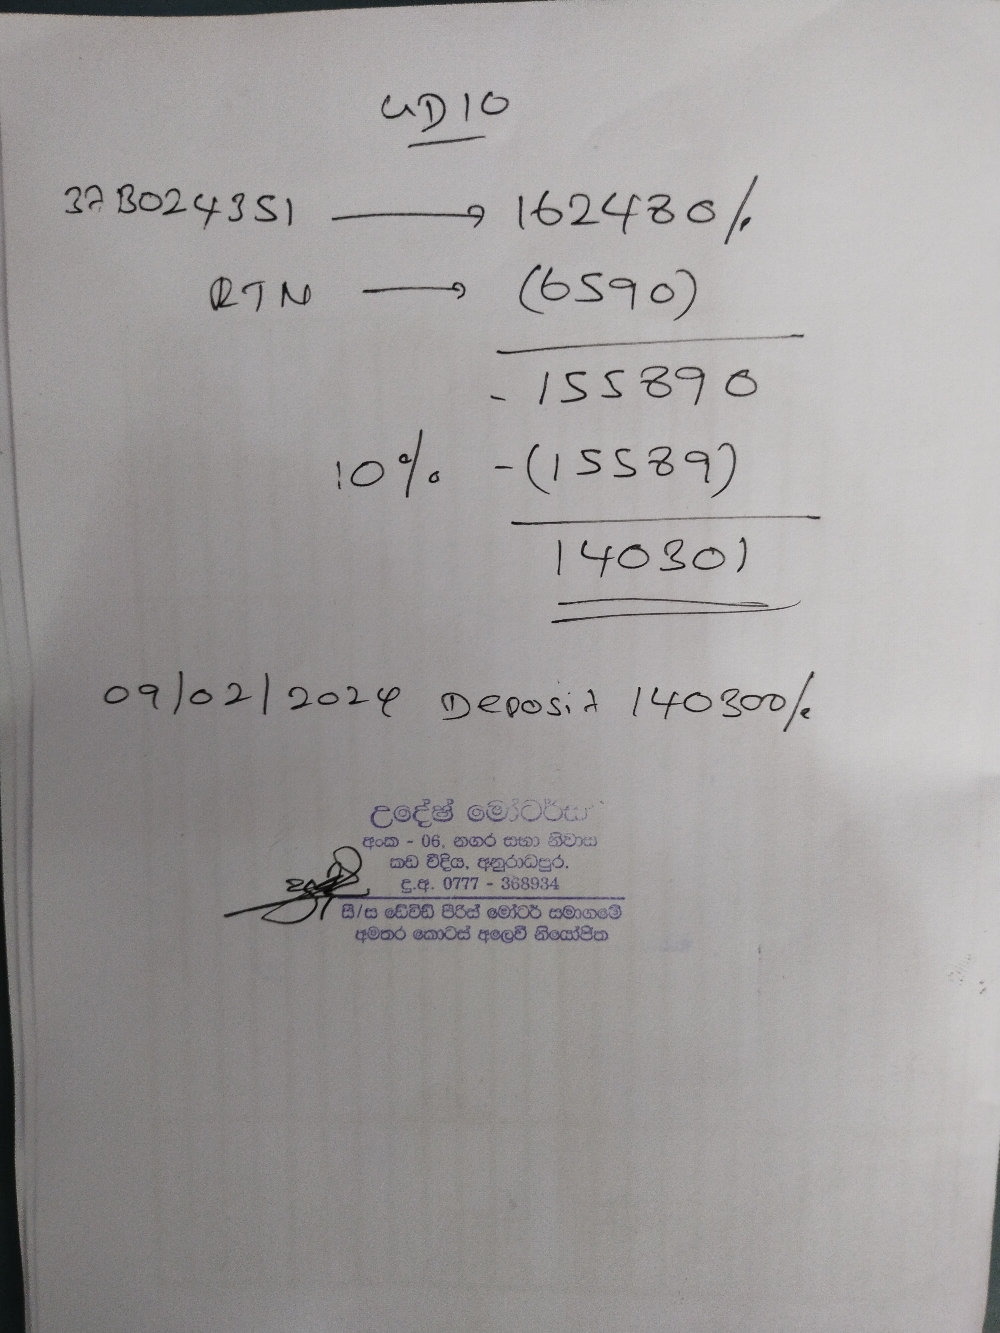 UD10
37B024351 → 162480/.
RTN → (6590)
- 155890
10% -(15589)
140301
09/02/2024 Deposit 140300/.
උදේෂ් මෝටර්ස්
අංක - 06, නගර සභා නිවාස
කඩ වීදිය, අනුරාධපුර.
දු.අ. 0777 - 368934
සී/ස ඩේවිඩ් පීරිස් මෝටර් සමාගමේ
අමතර කොටස් අලෙවි නියෝජිත